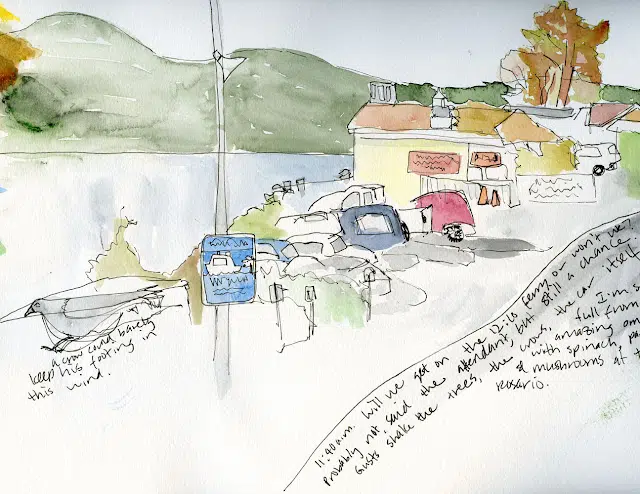 a crow could barely
keep his footing in
this wind.
11:40 a.m. Will we get on the 12:15 ferry or won't we?
Probably not said the attendant, but still a chance.
Gusts shake the trees, the work, the car itself.
full from
I'm s
amazing om
with spinach, pe
& mushrooms at t
Rosario.